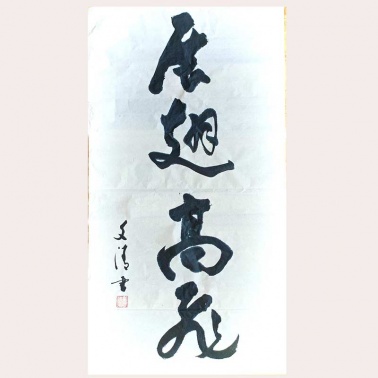 展翅高飛
文清书